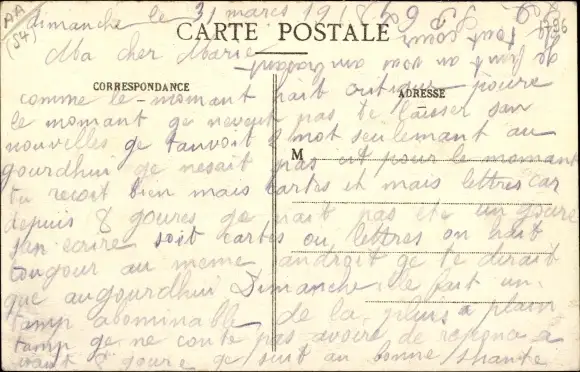 AA
(54)
dimanche le 31 mars 1918
CARTE POSTALE
Ma cher Marie
CORRESPONDANCE
ADRESSE
comme le momant nait critique pour
le momant ge neveut pas te laisser san
nouvelles ge tanvoit 2 mot seulemant au
gourdhui ge nesait pas sit pour le momant
M
tu recoit bien mais cartes et mais lettres car
depuis 8 goures ge nait pas ete un goure
san ecrire soit cartes ou lettres on nait
tougour au meme androit ge te dirait
que augourdhui Dimanche ille fait un
tamp abominable de la pluis a plain
tamp ge ne conte pas avoire de reponce a
vant 8 goure ge suit an bonne shante